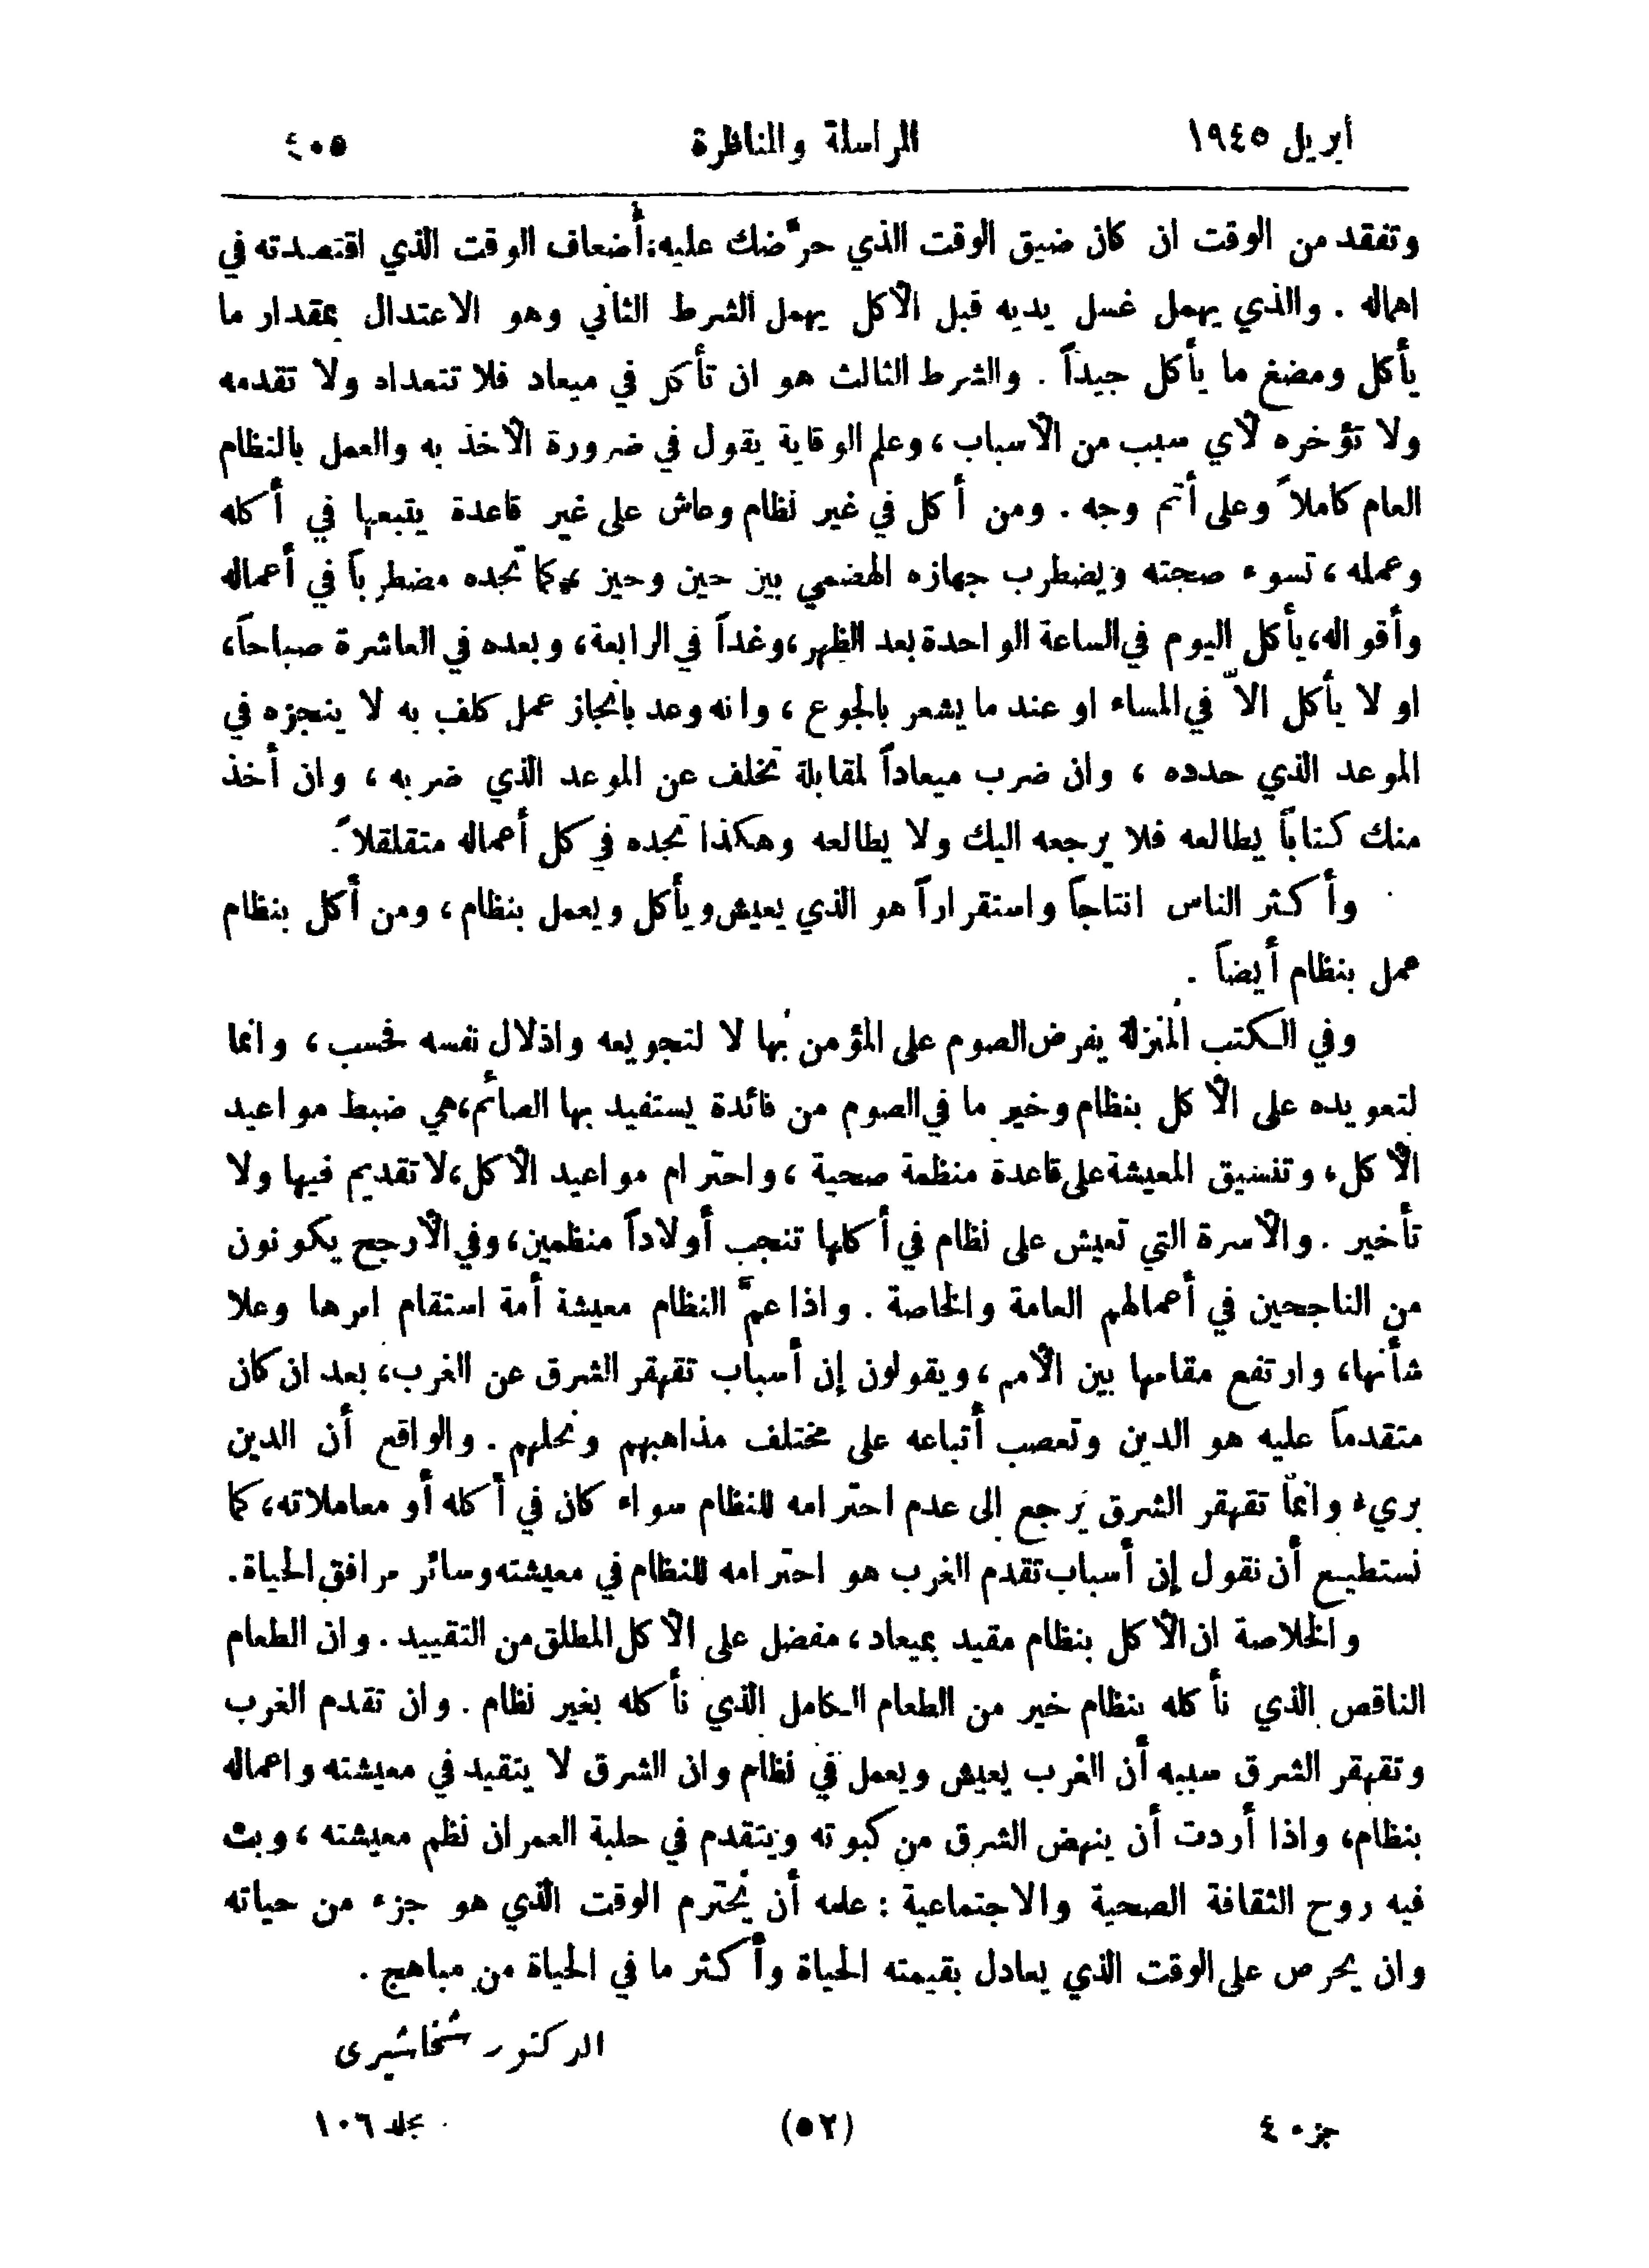 أبريل ١٩٤٥ المراسلة والمناظرة ٤٠٥
وتفقد من الوقت ان كان ضيق الوقت الذي حرَّضك عليه، أضعاف الوقت الذي اقتصدته في
اهماله . والذي يهمل غسل يديه قبل الأكل يهمل الشرط الثاني وهو الاعتدال بمقدار ما
يأكل ومضغ ما يأكل جيداً . والشرط الثالث هو ان تأكل في ميعاد فلا تتعداه ولا تقدمه
ولا تؤخره لأي سبب من الأسباب ، وعلم الوقاية يقول في ضرورة الأخذ به والعمل بالنظام
العام كاملاً وعلى أتم وجه . ومن أكل في غير نظام وعاش على غير قاعدة يتبعها في أكله
وعمله ، تسوء صحته ويضطرب جهازه الهضمي بين حين وحين ، كما تجده مضطرباً في أعماله
وأقواله، يأكل اليوم في الساعة الواحدة بعد الظهر، وغداً في الرابعة، وبعده في العاشرة صباحاً،
او لا يأكل الاّ في المساء او عند ما يشعر بالجوع ، وانه وعد بانجاز عمل كلف به لا ينجزه في
الموعد الذي حدده ، وان ضرب ميعاداً لمقابلة تخلف عن الموعد الذي ضربه ، وان أخذ
منك كتاباً يطالعه فلا يرجعه اليك ولا يطالعه وهكذا تجده في كل أعماله متقلقلاً .
وأكثر الناس انتاجاً واستقراراً هو الذي يعيش ويأكل ويعمل بنظام ، ومن أكل بنظام
عمل بنظام أيضاً .
وفي الكتب المنزلة يفرض الصوم على المؤمن بها لا لتجويعه واذلال نفسه فحسب ، وانما
لتعويده على الأكل بنظام وخير ما في الصوم من فائدة يستفيد بها الصائم، هي ضبط مواعيد
الأكل، وتنسيق المعيشة على قاعدة منظمة صحية ، واحترام مواعيد الأكل، لا تقديم فيها ولا
تأخير . والأسرة التي تعيش على نظام في أكلها تنجب أولاداً منظمين، وفي الأرجح يكونون
من الناجحين في أعمالهم العامة والخاصة . واذا عمَّ النظام معيشة أمة استقام امرها وعلا
شأنها، وارتفع مقامها بين الأمم ، ويقولون إن أسباب تقهقر الشرق عن الغرب، بعد ان كان
متقدماً عليه هو الدين وتعصب أتباعه على مختلف مذاهبهم ونحلهم . والواقع أن الدين
بريء وانمّا تقهقر الشرق يرجع الى عدم احترامه للنظام سواء كان في أكله أو معاملاته، كما
نستطيع أن نقول إن أسباب تقدم الغرب هو احترامه للنظام في معيشته وسائر مرافق الحياة.
والخلاصة ان الأكل بنظام مقيد بميعاد ، مفضل على الأكل المطلق من التقييد . وان الطعام
الناقص الذي نأكله بنظام خير من الطعام الكامل الذي نأكله بغير نظام . وان تقدم الغرب
وتقهقر الشرق سببه أن الغرب يعيش ويعمل في نظام وان الشرق لا يتقيد في معيشته واعماله
بنظام، واذا أردت أن ينهض الشرق من كبوته ويتقدم في حلبة العمران نظم معيشته ، وبث
فيه روح الثقافة الصحية والاجتماعية : علمه أن يحترم الوقت الذي هو جزء من حياته
وان يحرص على الوقت الذي يعادل بقيمته الحياة وأكثر ما في الحياة من مباهج .
الدكتور شخاشيرى
جزء ٤ (٥٢) مجلد ١٠٦